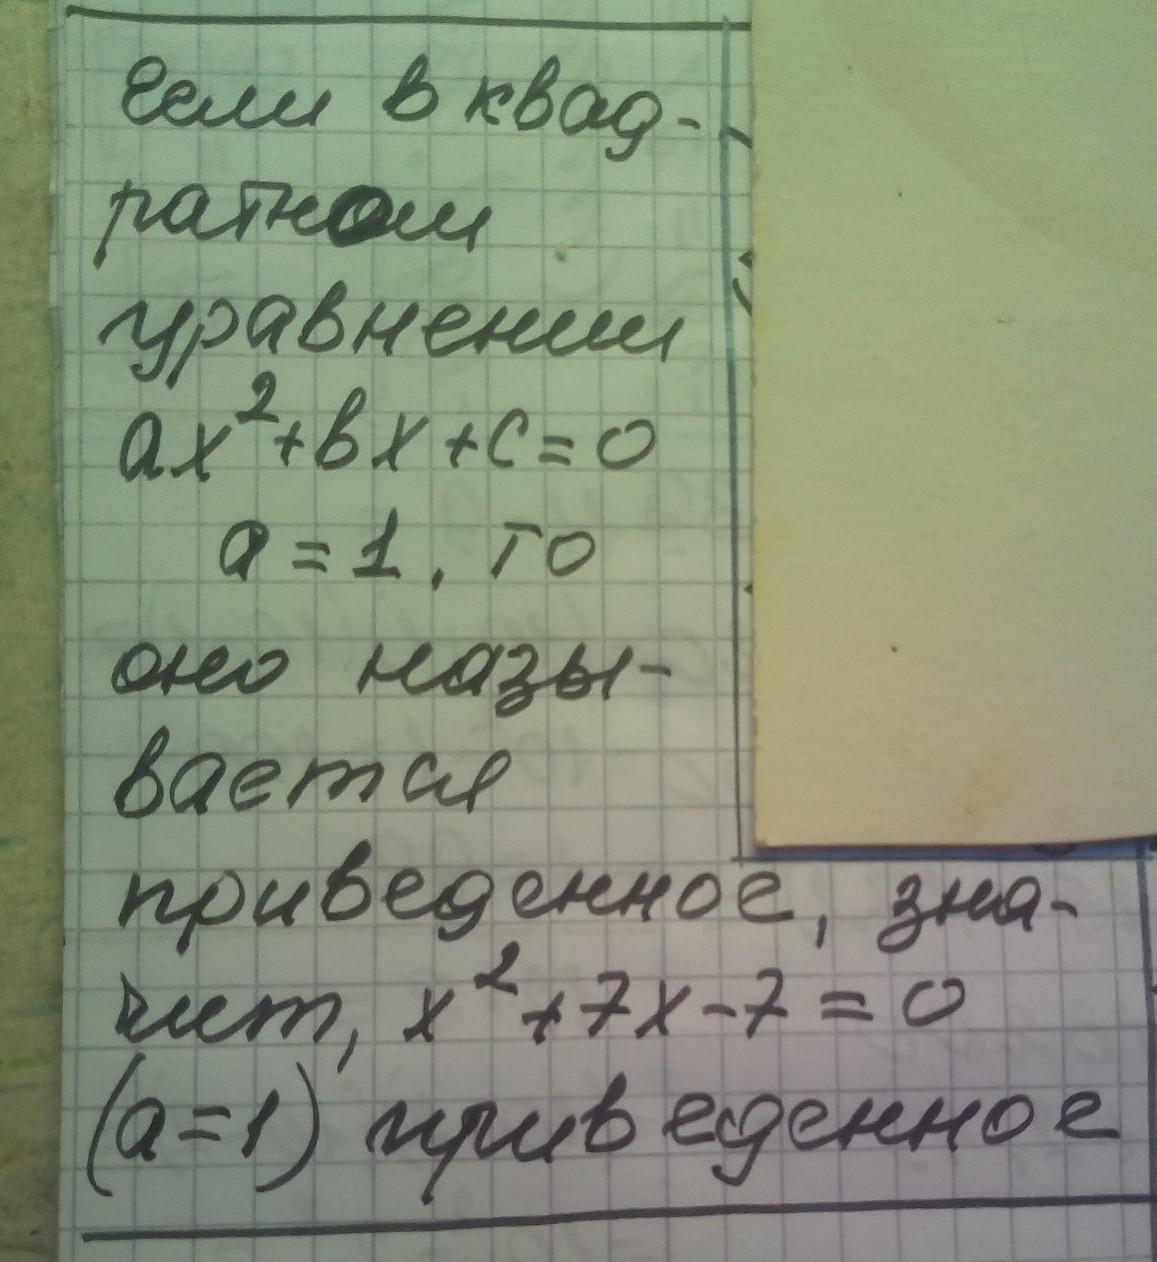 Если в квад-
ратном
уравнении
ax²+bx+c=0
a=1, то
оно назы-
вается
приведенное, зна-
чит, x²+7x-7=0
(a=1) приведенное